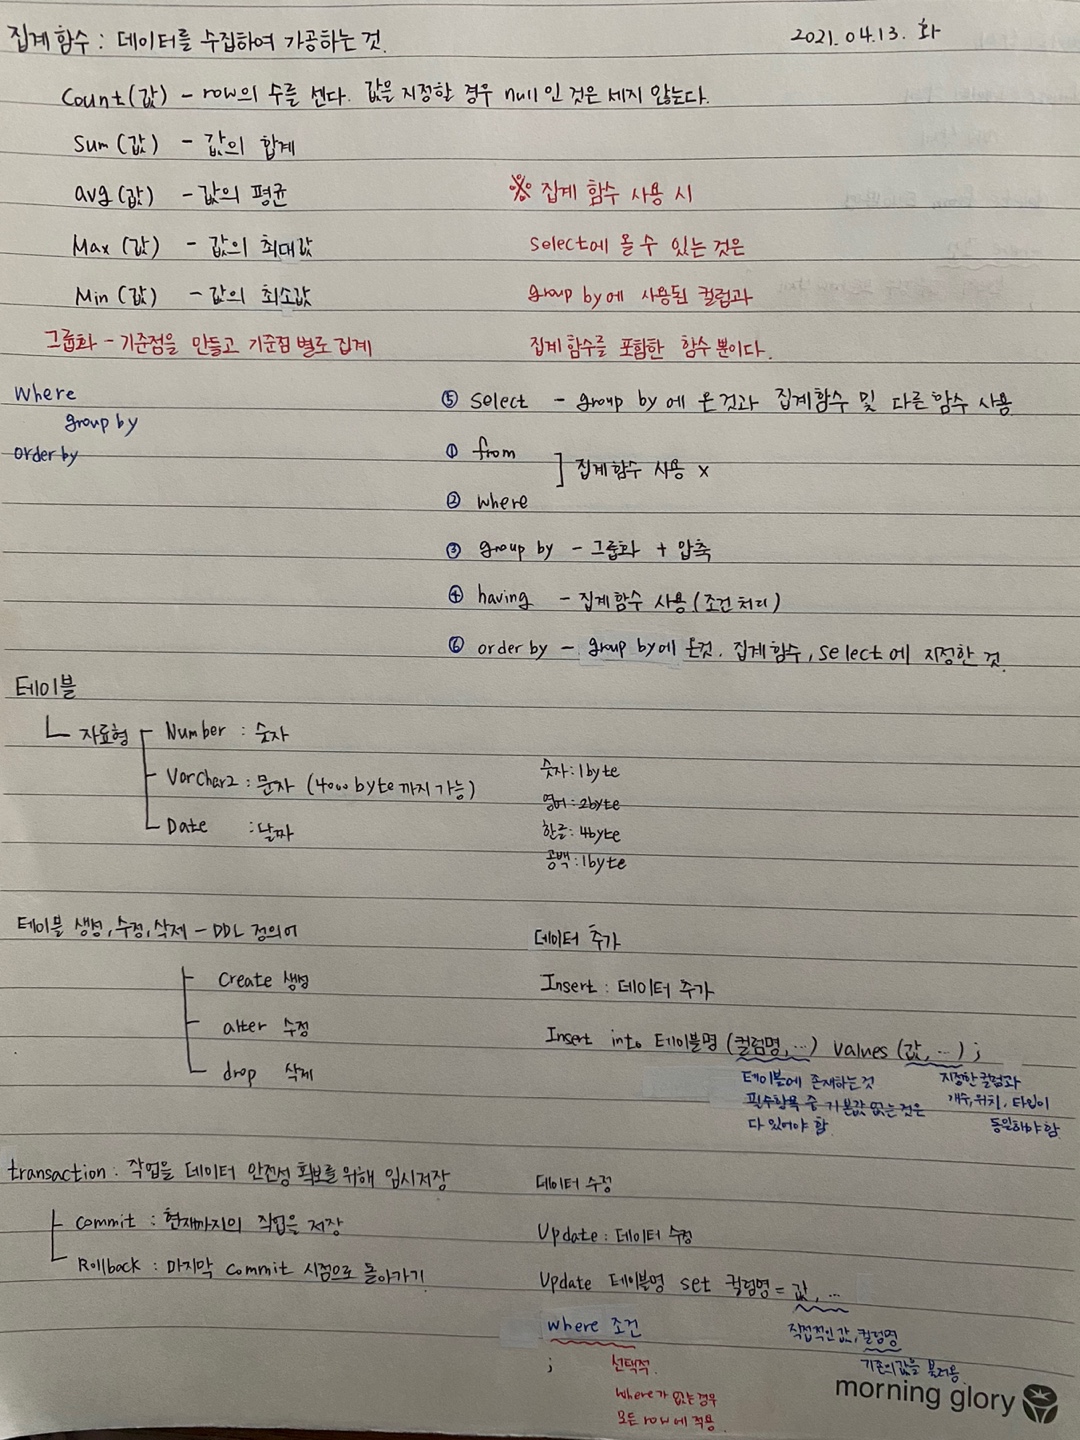 집계 함수 : 데이터를 수집하여 가공하는 것.
2021.04.13. 화
Count(값) - row의 수를 센다. 값을 지정할 경우 null인 것은 세지 않는다.
Sum(값) - 값의 합계
avg(값) - 값의 평균
Max(값) - 값의 최대값
Min(값) - 값의 최소값
그룹화 - 기준점을 만들고 기준점 별로 집계
※ 집계 함수 사용 시
select에 올 수 있는 것은
group by에 사용된 컬럼과
집계함수를 포함한 함수 뿐이다.
where
group by
order by
⑤ select - group by에 온것과 집계함수 및 다른 함수 사용
① from
② where
] 집계함수 사용 x
③ group by - 그룹화 + 압축
④ having - 집계함수 사용(조건처리)
⑥ order by - group by에 온것. 집계함수, select에 지정한 것.
테이블
자료형
Number : 숫자
Varchar2 : 문자 (4000byte까지 가능)
Date : 날짜
숫자 : 1byte
영어 : 2byte
한글 : 4byte
공백 : 1byte
테이블 생성, 수정, 삭제 - DDL 정의어
Create 생성
alter 수정
drop 삭제
데이터 추가
Insert : 데이터 추가
Insert into 테이블명 (컬럼명, …) values (값, …) ;
테이블에 존재하는것
필수항목 중 기본값 없는것은
다 있어야 함
지정한 컬럼과
개수, 위치, 타입이
동일해야 함
transaction : 작업을 데이터 안전성 확보를 위해 임시저장
commit : 현재까지의 작업을 저장
Rollback : 마지막 commit 시점으로 돌아가기
데이터 수정
Update : 데이터 수정
Update 테이블명 set 컬럼명 = 값, …
where 조건
;
직접적인값, 컬럼명
기존의값을 불러옴
선택적
where가 없는 경우
모든 row에 적용
morning glory